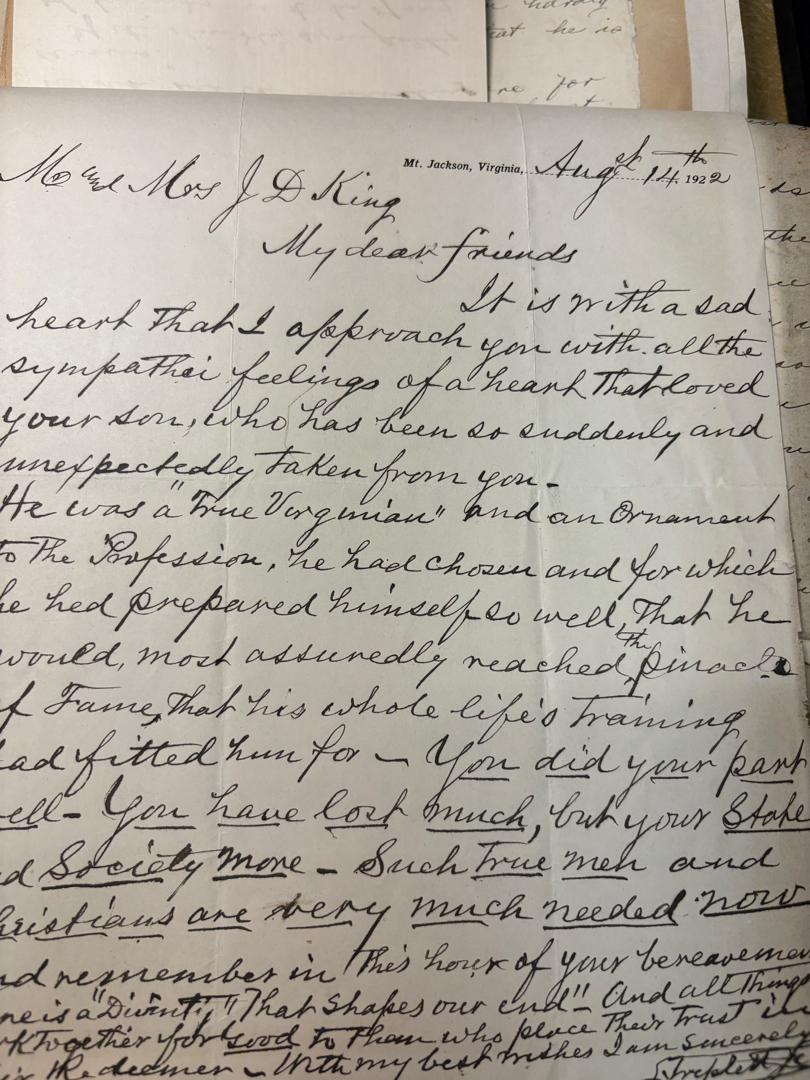 hardly
at he is
re for
Mt. Jackson, Virginia, Augst 14th 1922
Mr and Mrs J D King
My dear friends
It is with a sad
heart that I approach you with all the
sympathei feelings of a heart that loved
your son, who has been so suddenly and
unexpectedly taken from you -
He was a "True Virginian" and an Ornament
to the Profession, he had chosen and for which
he hed prepared himself so well, that he
would, most assuredly reached the pinacle
of Fame, that his whole life's training
had fitted him for - You did your part
ell - You have lost much, but your State
d Society more - Such true men and
hristians are very much needed now
nd remember in this hour of your bereavemen
re is a "Divinity" That shapes our end" - And all things
rk together for good to them who place their trust in
ir Redeemer - With my best wishes I am sincerely